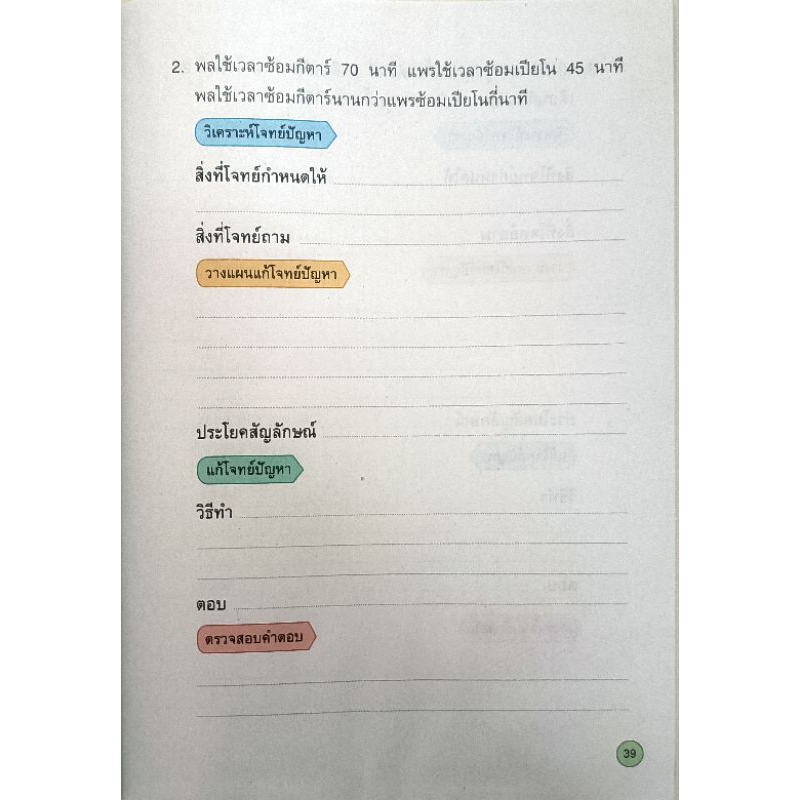 2. พลใช้เวลาซ้อมกีตาร์ 70 นาที แพรใช้เวลาซ้อมเปียโน 45 นาที
พลใช้เวลาซ้อมกีตาร์นานกว่าแพรซ้อมเปียโนกี่นาที
วิเคราะห์โจทย์ปัญหา
สิ่งที่โจทย์กำหนดให้
สิ่งที่โจทย์ถาม
วางแผนแก้โจทย์ปัญหา
ประโยคสัญลักษณ์
แก้โจทย์ปัญหา
วิธีทำ
ตอบ
ตรวจสอบคำตอบ
39